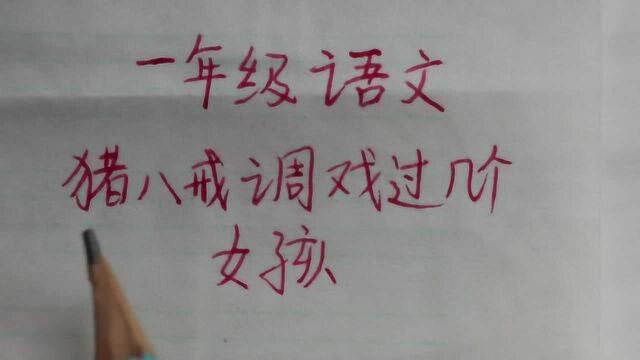 一年级语文
猪八戒调戏过几个
女孩